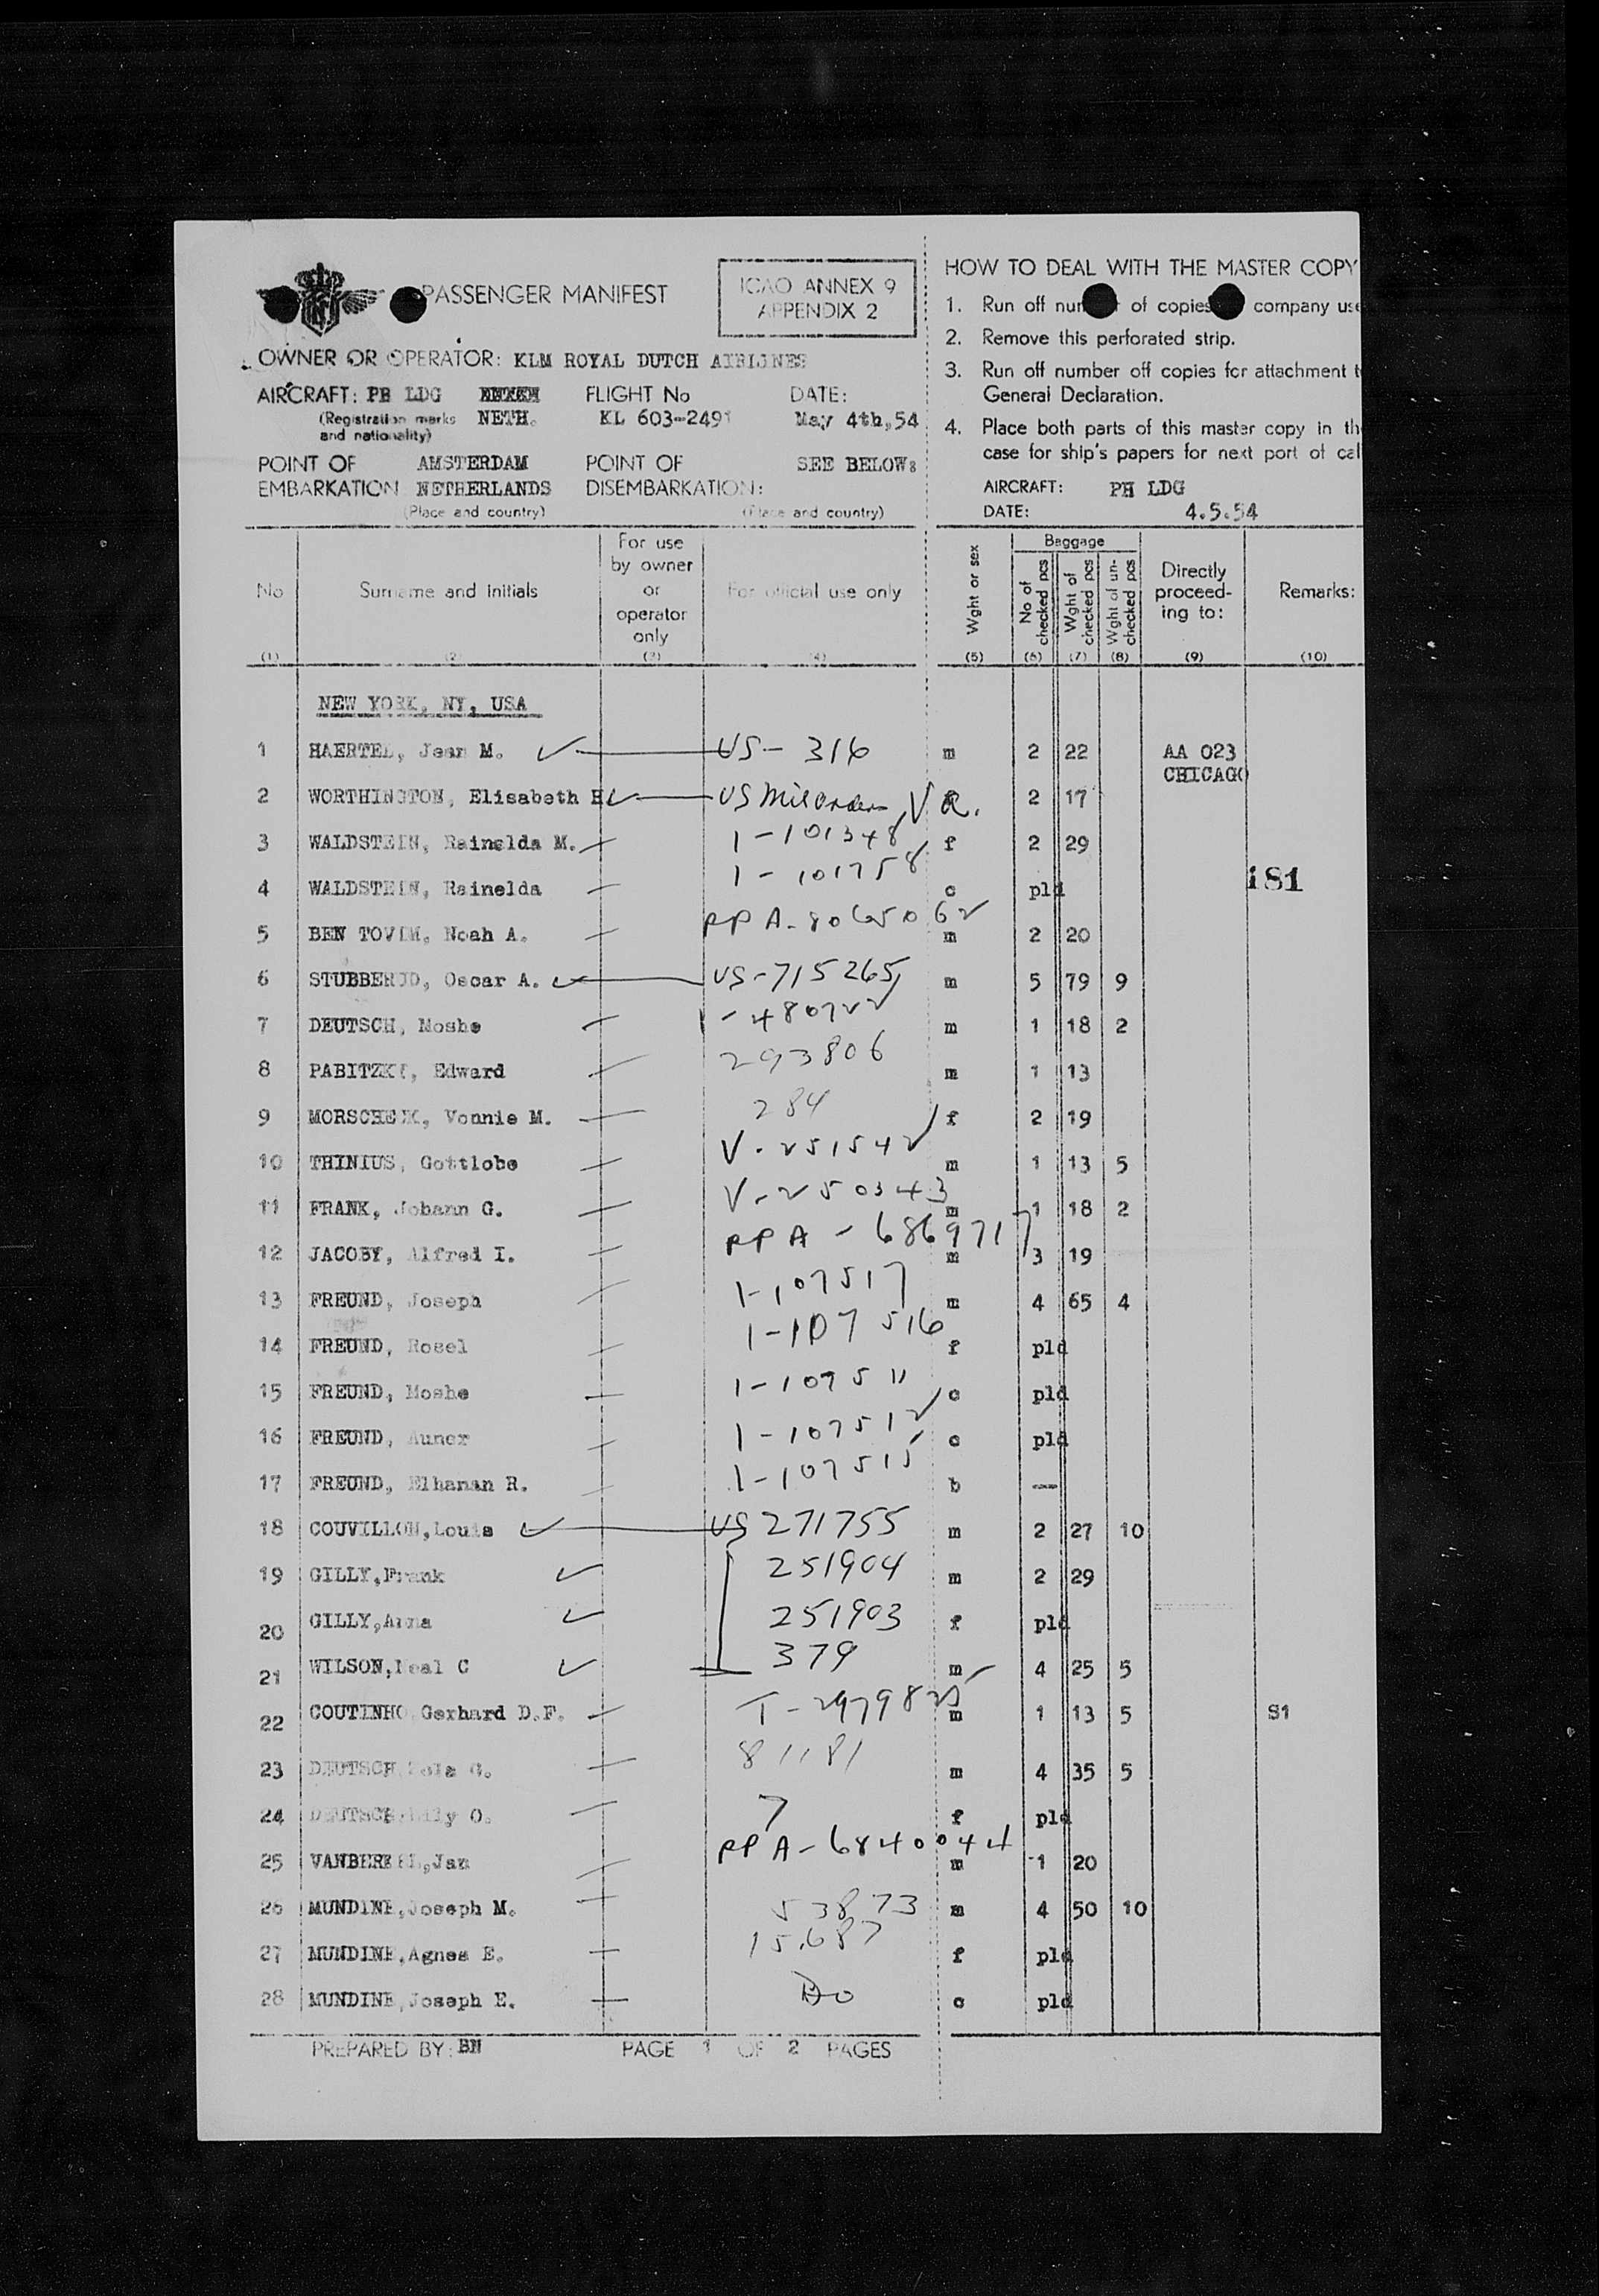 PASSENGER MANIFEST
ICAO ANNEX 9
APPENDIX 2
OWNER OR OPERATOR: KLM ROYAL DUTCH AIRLINES
AIRCRAFT: PH LDG FLIGHT No DATE:
(Registration marks and nationality) NETH. KL 603-2491 May 4th,54
POINT OF EMBARKATION AMSTERDAM NETHERLANDS POINT OF DISEMBARKATION: SEE BELOW:
(Place and country) (Place and country)
HOW TO DEAL WITH THE MASTER COPY
1. Run off of copies company use
2. Remove this perforated strip.
3. Run off number off copies for attachment
General Declaration.
4. Place both parts of this master copy in
case for ship's papers for next port of
AIRCRAFT: PH LDG
DATE: 4.5.54
No Surname and initials For use by owner or operator only For official use only Wght or sex Baggage No of checked pcs Wght of checked pcs Wght of un-checked pcs Directly proceed-ing to: Remarks:
(1) (2) (3) (4) (5) (6) (7) (8) (9) (10)
NEW YORK, NY, USA
1 HAERTEL, Jean M. US- 316 m 2 22 AA 023
CHICAGO
2 WORTHINGTON, Elisabeth US 2 17
3 WALDSTEIN, Rainelda M. 1-101348 f 2 29
4 WALDSTEIN, Rainelda 1-101758 c pld 181
5 BEN TOVIM, Noah A. m 2 20
6 STUBBERUD, Oscar A. US-715265 m 5 79 9
7 DEUTSCH, Moshe m 1 18 2
8 PABITZKI, Edward 293806 m 1 13
9 Vonnie M. 284 f 2 19
10 THINIUS, Gottlobe V-251542 m 1 13 5
11 FRANK, Johann G. V-250343 m 1 18 2
12 JACOBY, Alfred I. m 3 19
13 FREUND, Joseph 1-107517 m 4 65 4
14 FREUND, Rosel 1-107516 f pld
15 FREUND, Moshe c pld
16 FREUND, 1-107512 c pld
17 FREUND, Elhanan R. 1-107515 b —
18 COUVILLON,Louis US 271755 m 2 27 10
19 GILLY,Frank 251904 m 2 29
20 GILLY,Anna 251903 f pld
21 WILSON,Neal C 379 m 4 25 5
22 COUTINHO Gerhard D.F. m 1 13 5 S1
23 DEUTSCH G. 81181 m 4 35 5
24 DEUTSCH Lily O. 7 f pld
25 Jan A-6840044 m 1 20
26 MUNDINE,Joseph M. 53873 m 4 50 10
27 MUNDINE,Agnes E. 15.687 f pld
28 MUNDINE,Joseph E. Do c pld
PREPARED BY: BN PAGE 1 OF 2 PAGES